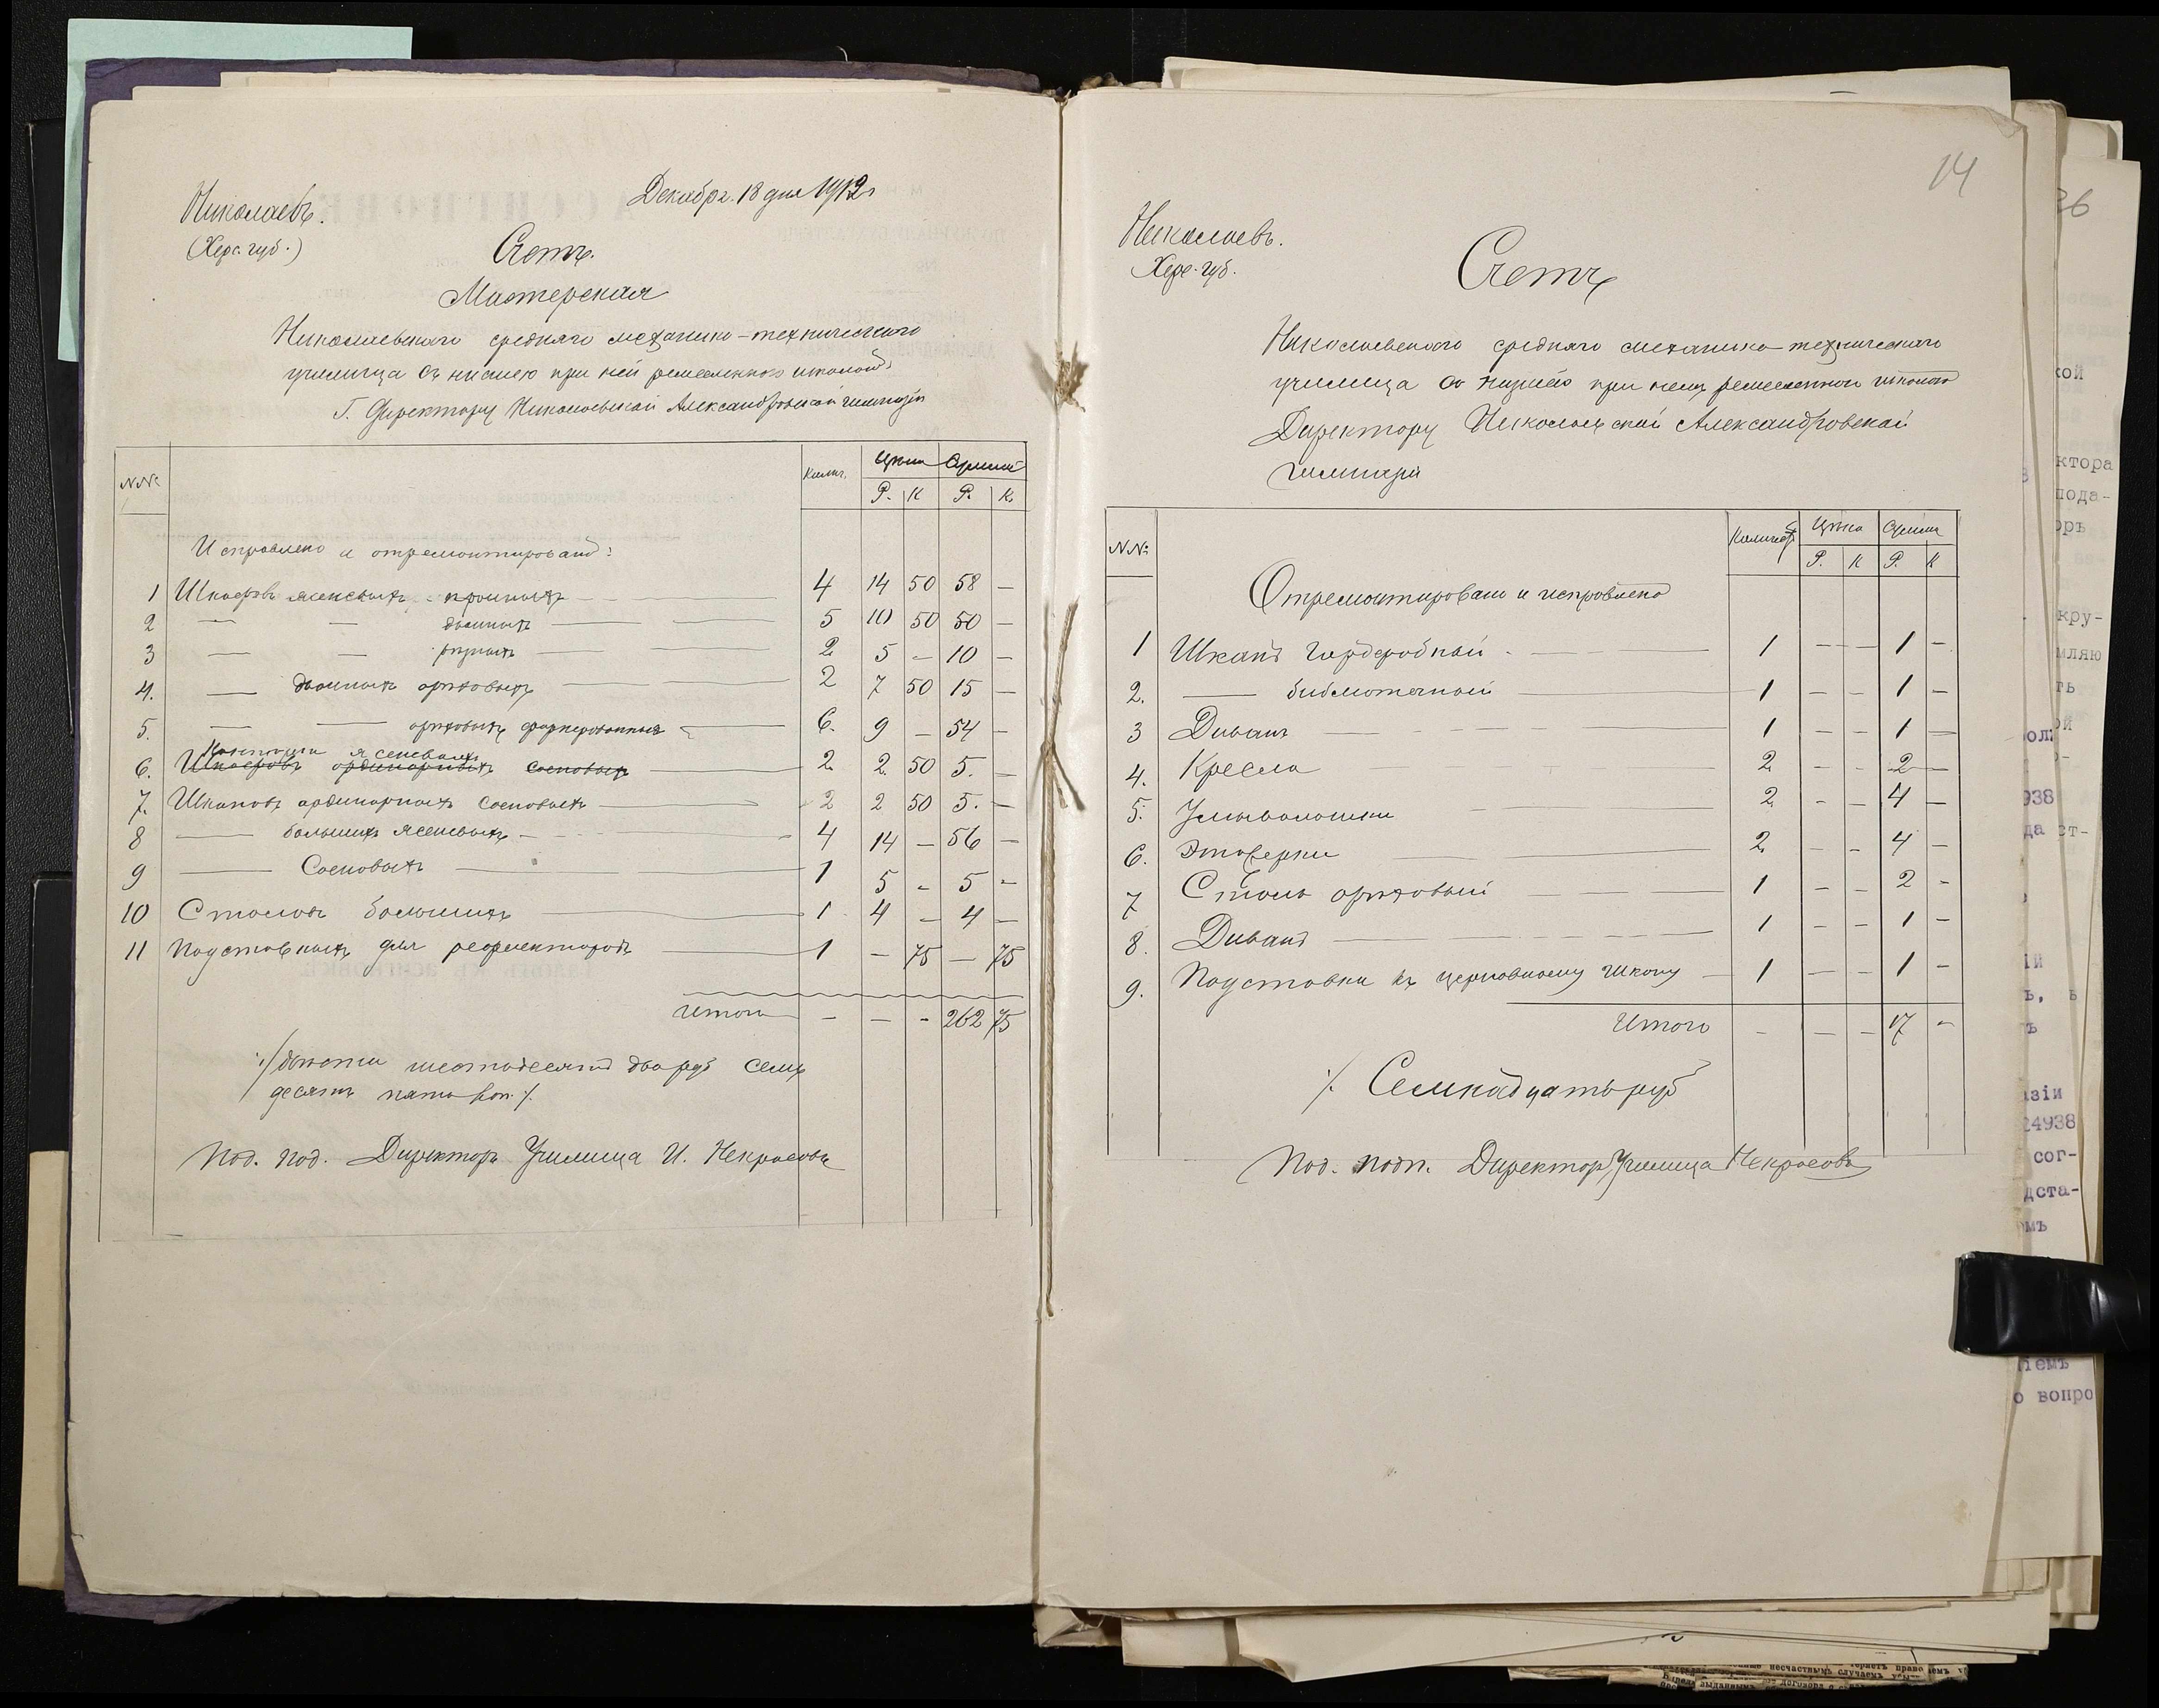 Декабря 18 дня 1912 г
Николаевъ.
(Херс. губ.)
Счетъ.
Мастерская
Николаевскаго средняго механико-техническаго
училища съ низшею при ней ремесленною школой
Г. Директору Николаевской Александровской гимназіи
№№ Колич. Цѣна Сумма
Р. К Р. К.
Исправлено и отремонтировано:
1 Шкафовъ ясеневыхъ - тройныхъ 4 14 50 58 —
2 — — двойныхъ 5 10 50 50 —
3 — — 2 5 — 10 —
4. — двойныхъ орѣховыхъ 2 7 50 15 —
5. — — орѣховыхъ 6. 9 — 54 —
ясеневыхъ
6. Шкафовъ ординарныхъ сосновыхъ 2 2 50 5. —
7. Шкаповъ ординарныхъ сосновыхъ 2 2 50 5. —
8 — большихъ ясеневыхъ 4 14 — 56 —
9 — Сосновыхъ 1 5 - 5 -
10 Столовъ большихъ 1 4 — 4 —
11 Подставныхъ для рефлекторовъ 1 — 75 — 75
Итого — — - 262 75
·/ двѣсти шестьдесятъ два руб семь
десятъ пять коп. /.
Под. под. Директоръ Училища И. Некрасовъ
14
Николаевъ.
Херс. губ.
Счетъ
Николаевскаго средняго механико-техническаго
училища съ низшею при немъ ремесленной школою
Директору Николаевской Александровской
гимназіи
№№ Количест Цѣна Сумма
Р. К Р. К
Отремонтировано и исправлено
1 Шкапъ гардеробный 1 — — 1 —
2. — библіотечный 1 — — 1 —
3 Диванъ 1 — — 1 —
4. Кресла 2 — - 2 —
5. Умывальники 2 - — 4 —
6. Этажерки 2 — - 4 —
7 Столъ орѣховый 1 — — 2 -
8. Диванъ 1 — — 1 —
9. Подставки къ церковному шкапу 1 — - 1 -
Итого - — — 17 -
·/. Семнадцать руб
Под. подп. Директоръ Училища Некрасовъ
26
кой
ктора
пода-
оръ
кру-
мляю
ть
938
да ст-
азіи
24938
сог-
дста-
омъ
ніемъ
о вопро